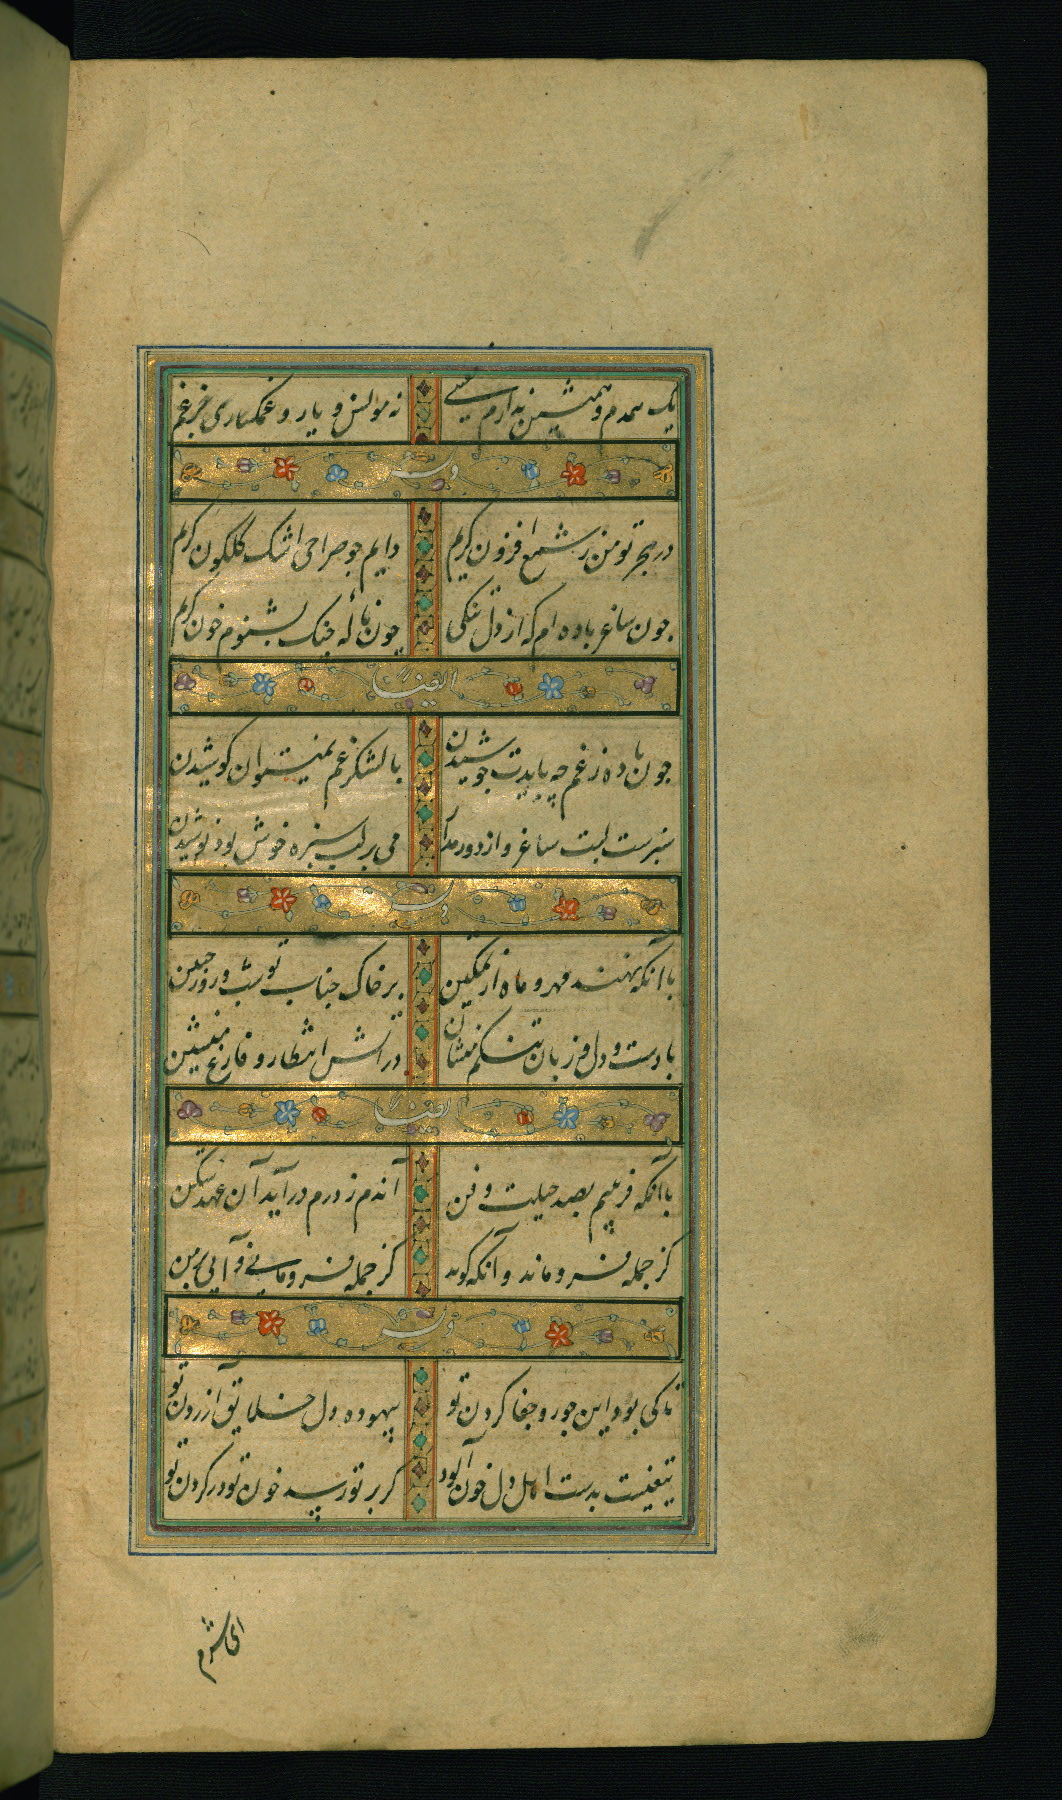 یک همدم و همنشین ندارم نفسی نه مونس و یار و غمگساری جز غم
وله
در هجر تو من ز شمع افزون گریم دایم جو صراحی اشک گلگون گریم
جون ساغر باده ام که از دل تنکی جون ناله جنک بشنوم خون گریم
ایضاً
جون باده ز غم چه بایدت جوشیدن با لشکر غم نمیتوان کوشیدن
سبزست لبت ساغر ازو دور مدار می بر لب سبزه خوش بود نوشیدن
وله
با آنکه نهند مهر و ماه از تمکین بر خاک جناب تو شب و روز جبین
با دست و دل و زبان تنکم منشان در آتش انتظار و فارغ منشین
ایضاً
با آنکه فریبیم بصد حیلت و فن آندم ز درم درآید آن عهد شکن
کز جمله فرو ماند و آنکه کوید کز جمله فرومانی و آیی بر من
وله
تا کی بود این جور و جفا کردن تو بیهوده دل خلایق آزردن تو
تیغیست بدست اهل دل خون آلود کر بر تو رسد خون تو در کردن تو
ای شرم